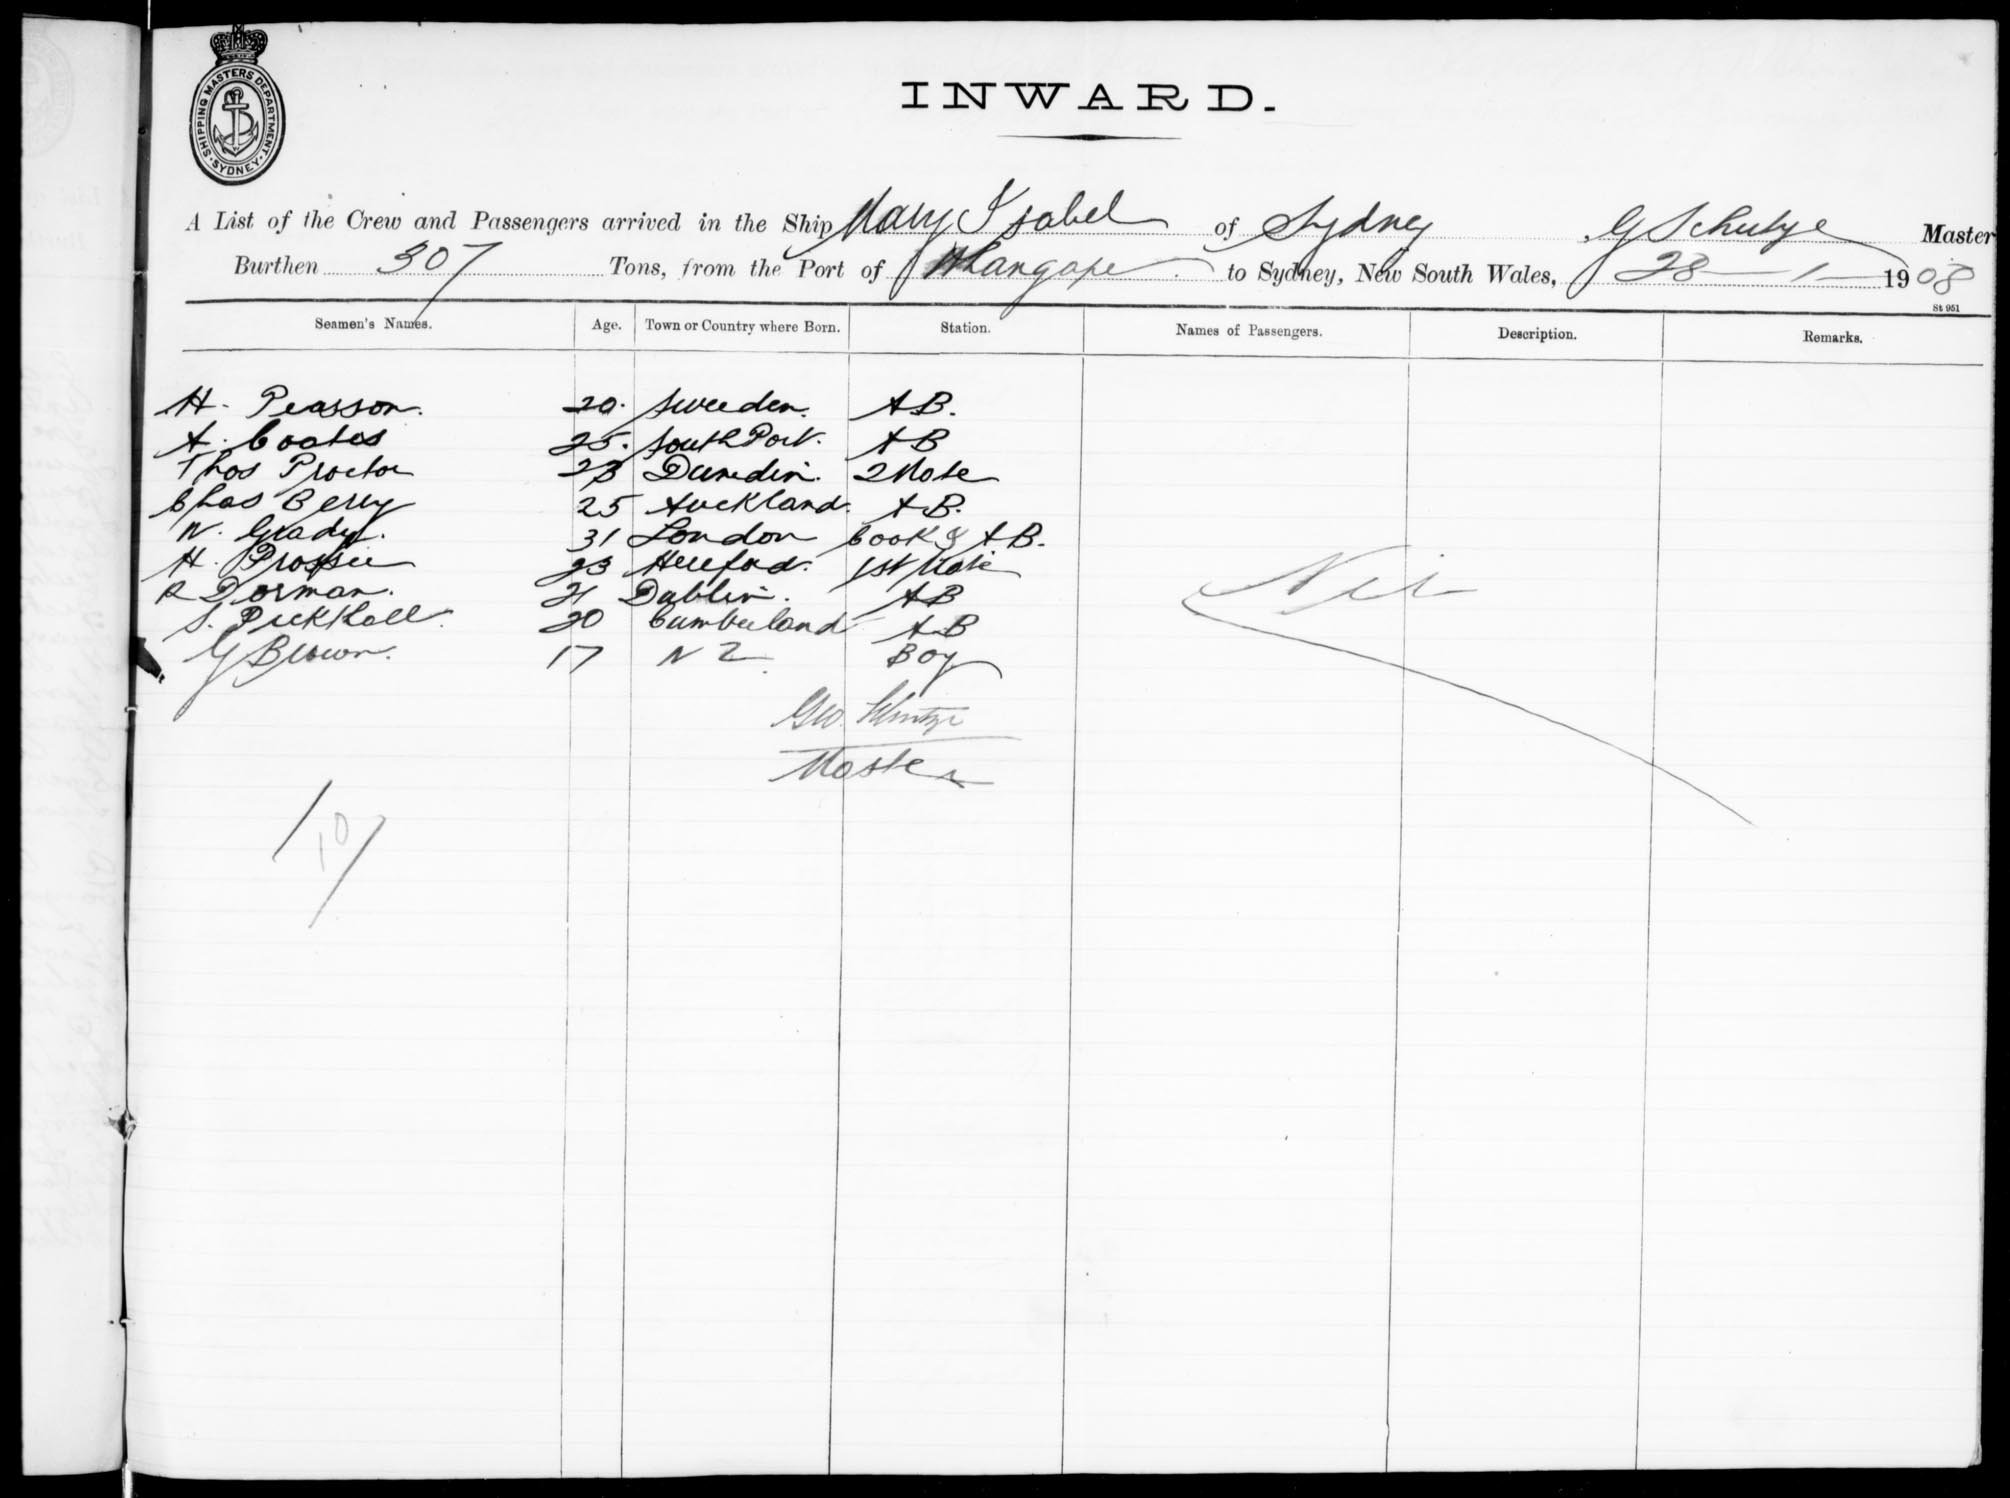 SHIPPING MASTERS DEPARTMENT. SYDNEY.
INWARD.
A List of the Crew and Passengers arrived in the Ship Mary Isabel of Sydney, G Schutze Master
Burthen 307 Tons, from the Port of Whangape to Sydney, New South Wales, 28-1-1908
St 951
Seamen's Names. Age. Town or Country where Born. Station. Names of Passengers. Description. Remarks.
H. Pearson. 20. Sweeden. AB.
A. Coates 25. South Port. AB
Thos Proctor 23 Dunedin. 2 Mate
Chas Berry 25 Auckland. AB.
W. Grady. 31 London Cook & AB.
H. Prosser 23 Hereford. 1st Mate
R Dorman. 21 Dublin. AB
S. Pickthall. 20 Cumberland AB
G Brown. 17 NZ. Boy
Nil
Geo. Schutze
Master
/10/